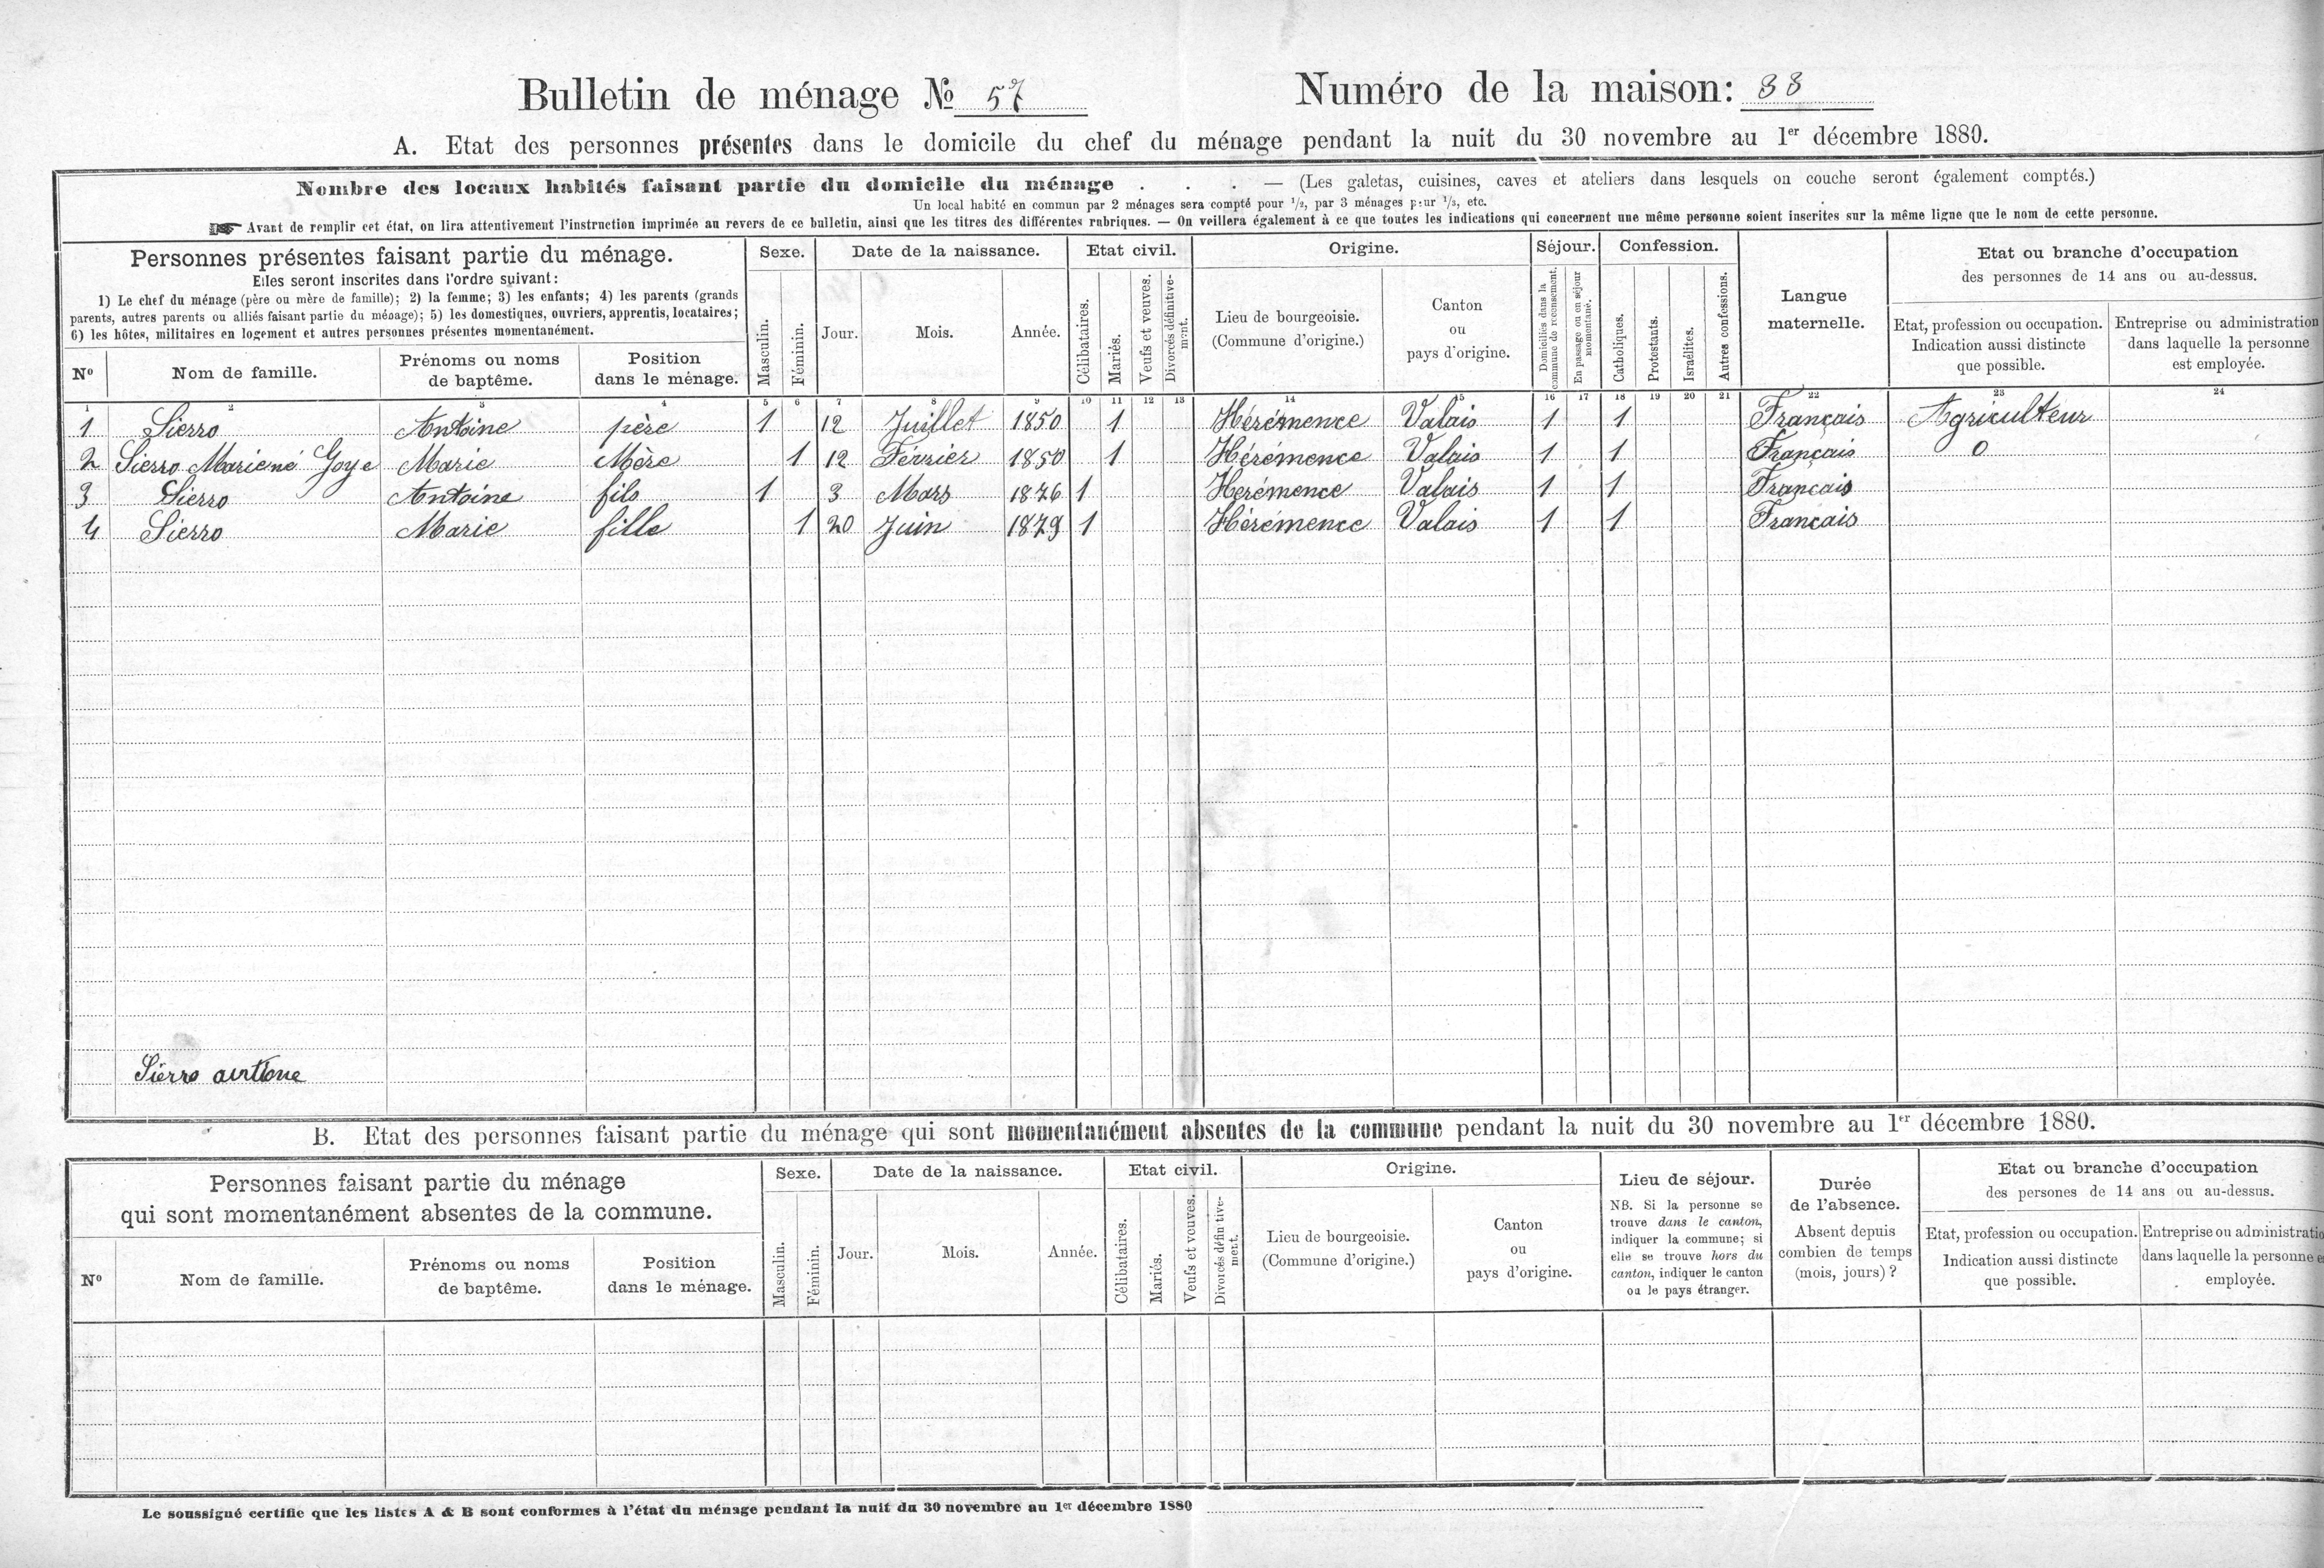 Bulletin de ménage № 57
Numéro de la maison: 38
A. Etat des personnes présentes dans le domicile du chef du ménage pendant la nuit du 30 novembre au 1er décembre 1880.
Nombre des locaux habités faisant partie du domicile du ménage . . . — (Les galetas, cuisines, caves et ateliers dans lesquels on couche seront également comptés.)
Un local habité en commun par 2 ménages sera compté pour 1/2, par 3 ménages pour 1/3, etc.
☛ Avant de remplir cet état, on lira attentivement l'instruction imprimée au revers de ce bulletin, ainsi que les titres des différentes rubriques. — On veillera également à ce que toutes les indications qui concernent une même personne soient inscrites sur la même ligne que le nom de cette personne.
Personnes présentes faisant partie du ménage.
Elles seront inscrites dans l'ordre suivant:
1) Le chef du ménage (père ou mère de famille); 2) la femme; 3) les enfants; 4) les parents (grands
parents, autres parents ou alliés faisant partie du ménage); 5) les domestiques, ouvriers, apprentis, locataires;
6) les hôtes, militaires en logement et autres personnes présentes momentanément.
Nº
Nom de famille.
Prénoms ou noms
de baptême.
Position
dans le ménage.
Sexe.
Masculin.
Féminin.
Date de la naissance.
Jour.
Mois.
Année.
Etat civil.
Célibataires.
Mariés.
Veufs et veuves.
Divorcés définitive-
ment.
Origine.
Lieu de bourgeoisie.
(Commune d'origine.)
Canton
ou
pays d'origine.
Séjour.
Domiciliés dans la
commune de recensement.
En passage ou en séjour
momentané.
Confession.
Catholiques.
Protestants.
Israélites.
Autres confessions.
Langue
maternelle.
Etat ou branche d'occupation
des personnes de 14 ans ou au-dessus.
Etat, profession ou occupation.
Indication aussi distincte
que possible.
Entreprise ou administration
dans laquelle la personne
est employée.
1 2 3 4 5 6 7 8 9 10 11 12 13 14 15 16 17 18 19 20 21 22 23 24
1 Sierro Antoine père 1 12 Juillet 1850 1 Hérémence Valais 1 1 Français Agriculteur
2 Sierro Marie né Goye Marie Mère 1 12 Février 1850 1 Hérémence Valais 1 1 Français 0
3 Sierro Antoine fils 1 3 Mars 1876 1 Herémence Valais 1 1 Français
4 Sierro Marie fille 1 20 Juin 1879 1 Hérémence Valais 1 1 Français
Sierro
B. Etat des personnes faisant partie du ménage qui sont momentanément absentes de la commune pendant la nuit du 30 novembre au 1er décembre 1880.
Personnes faisant partie du ménage
qui sont momentanément absentes de la commune.
Nº
Nom de famille.
Prénoms ou noms
de baptême.
Position
dans le ménage.
Sexe.
Masculin.
Féminin.
Date de la naissance.
Jour.
Mois.
Année.
Etat civil.
Célibataires.
Mariés.
Veufs et veuves.
Divorcés définitive-
ment.
Origine.
Lieu de bourgeoisie.
(Commune d'origine.)
Canton
ou
pays d'origine.
Lieu de séjour.
NB. Si la personne se
trouve dans le canton,
indiquer la commune; si
elle se trouve hors du
canton, indiquer le canton
ou le pays étranger.
Durée
de l'absence.
Absent depuis
combien de temps
(mois, jours) ?
Etat ou branche d'occupation
des persones de 14 ans ou au-dessus.
Etat, profession ou occupation.
Indication aussi distincte
que possible.
Entreprise ou administratio
dans laquelle la personne e
employée.
Le soussigné certifie que les listes A & B sont conformes à l'état du ménage pendant la nuit du 30 novembre au 1er décembre 1880